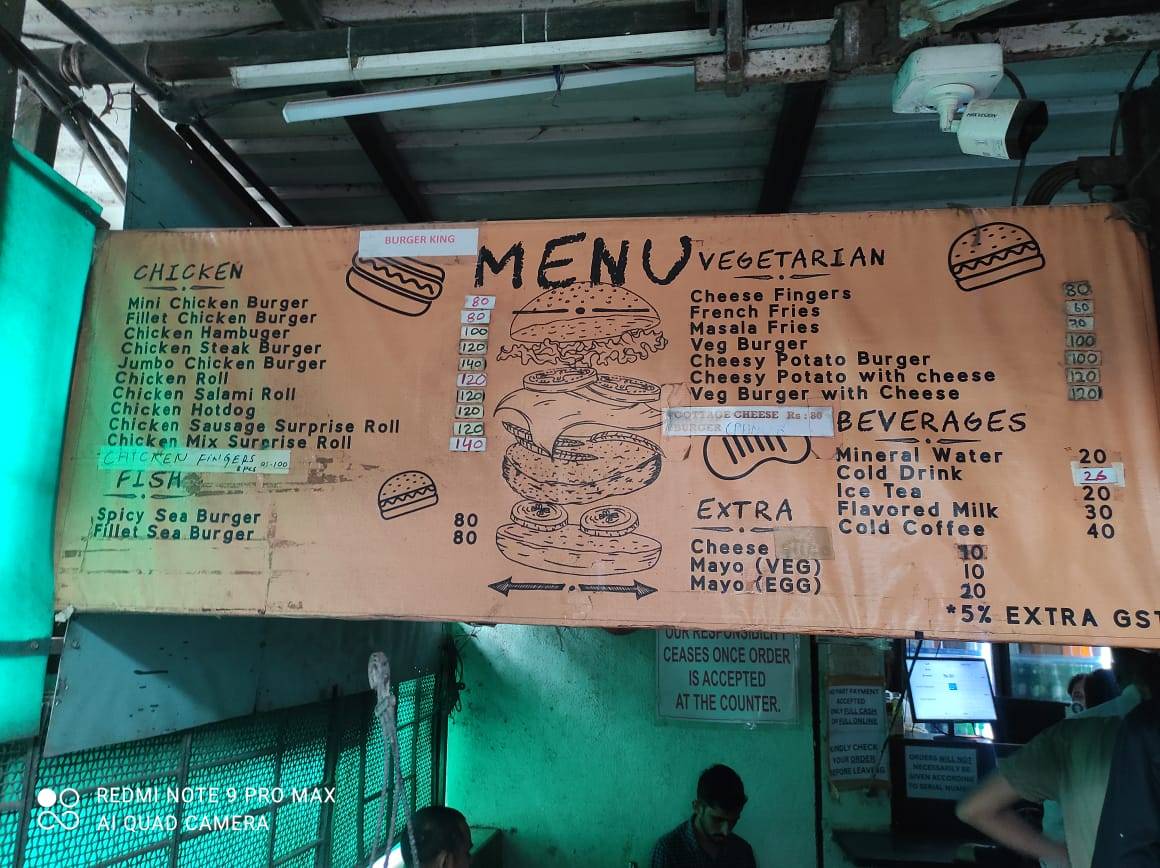 HIKVISION
BURGER KING
MENU
CHICKEN
Mini Chicken Burger 80
Fillet Chicken Burger 80
Chicken Hambuger 100
Chicken Steak Burger 120
Jumbo Chicken Burger 140
Chicken Roll 120
Chicken Salami Roll 120
Chicken Hotdog 120
Chicken Sausage Surprise Roll 120
Chicken Mix Surprise Roll 140
CHICKEN FINGERS 8 PCS RS-100
FISH
Spicy Sea Burger 80
Fillet Sea Burger 80
VEGETARIAN
Cheese Fingers 80
French Fries 60
Masala Fries 70
Veg Burger 100
Cheesy Potato Burger 100
Cheesy Potato with cheese 120
Veg Burger with Cheese 120
COTTAGE CHEESE Rs : 80
BURGER
BEVERAGES
Mineral Water 20
Cold Drink 25
Ice Tea 20
Flavored Milk 30
Cold Coffee 40
EXTRA
Cheese 10
Mayo (VEG) 10
Mayo (EGG) 20
*5% EXTRA GST
OUR RESPONSIBILITY
CEASES ONCE ORDER
IS ACCEPTED
AT THE COUNTER.
NO PART PAYMENT
ACCEPTED
ONLY FULL CASH
OR FULL ONLINE
KINDLY CHECK
YOUR ORDER
BEFORE LEAVING
ORDERS WILL NOT
NECESSARILY BE
GIVEN ACCORDING
TO SERIAL
REDMI NOTE 9 PRO MAX
AI QUAD CAMERA